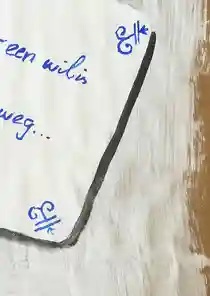 een wil is
weg...